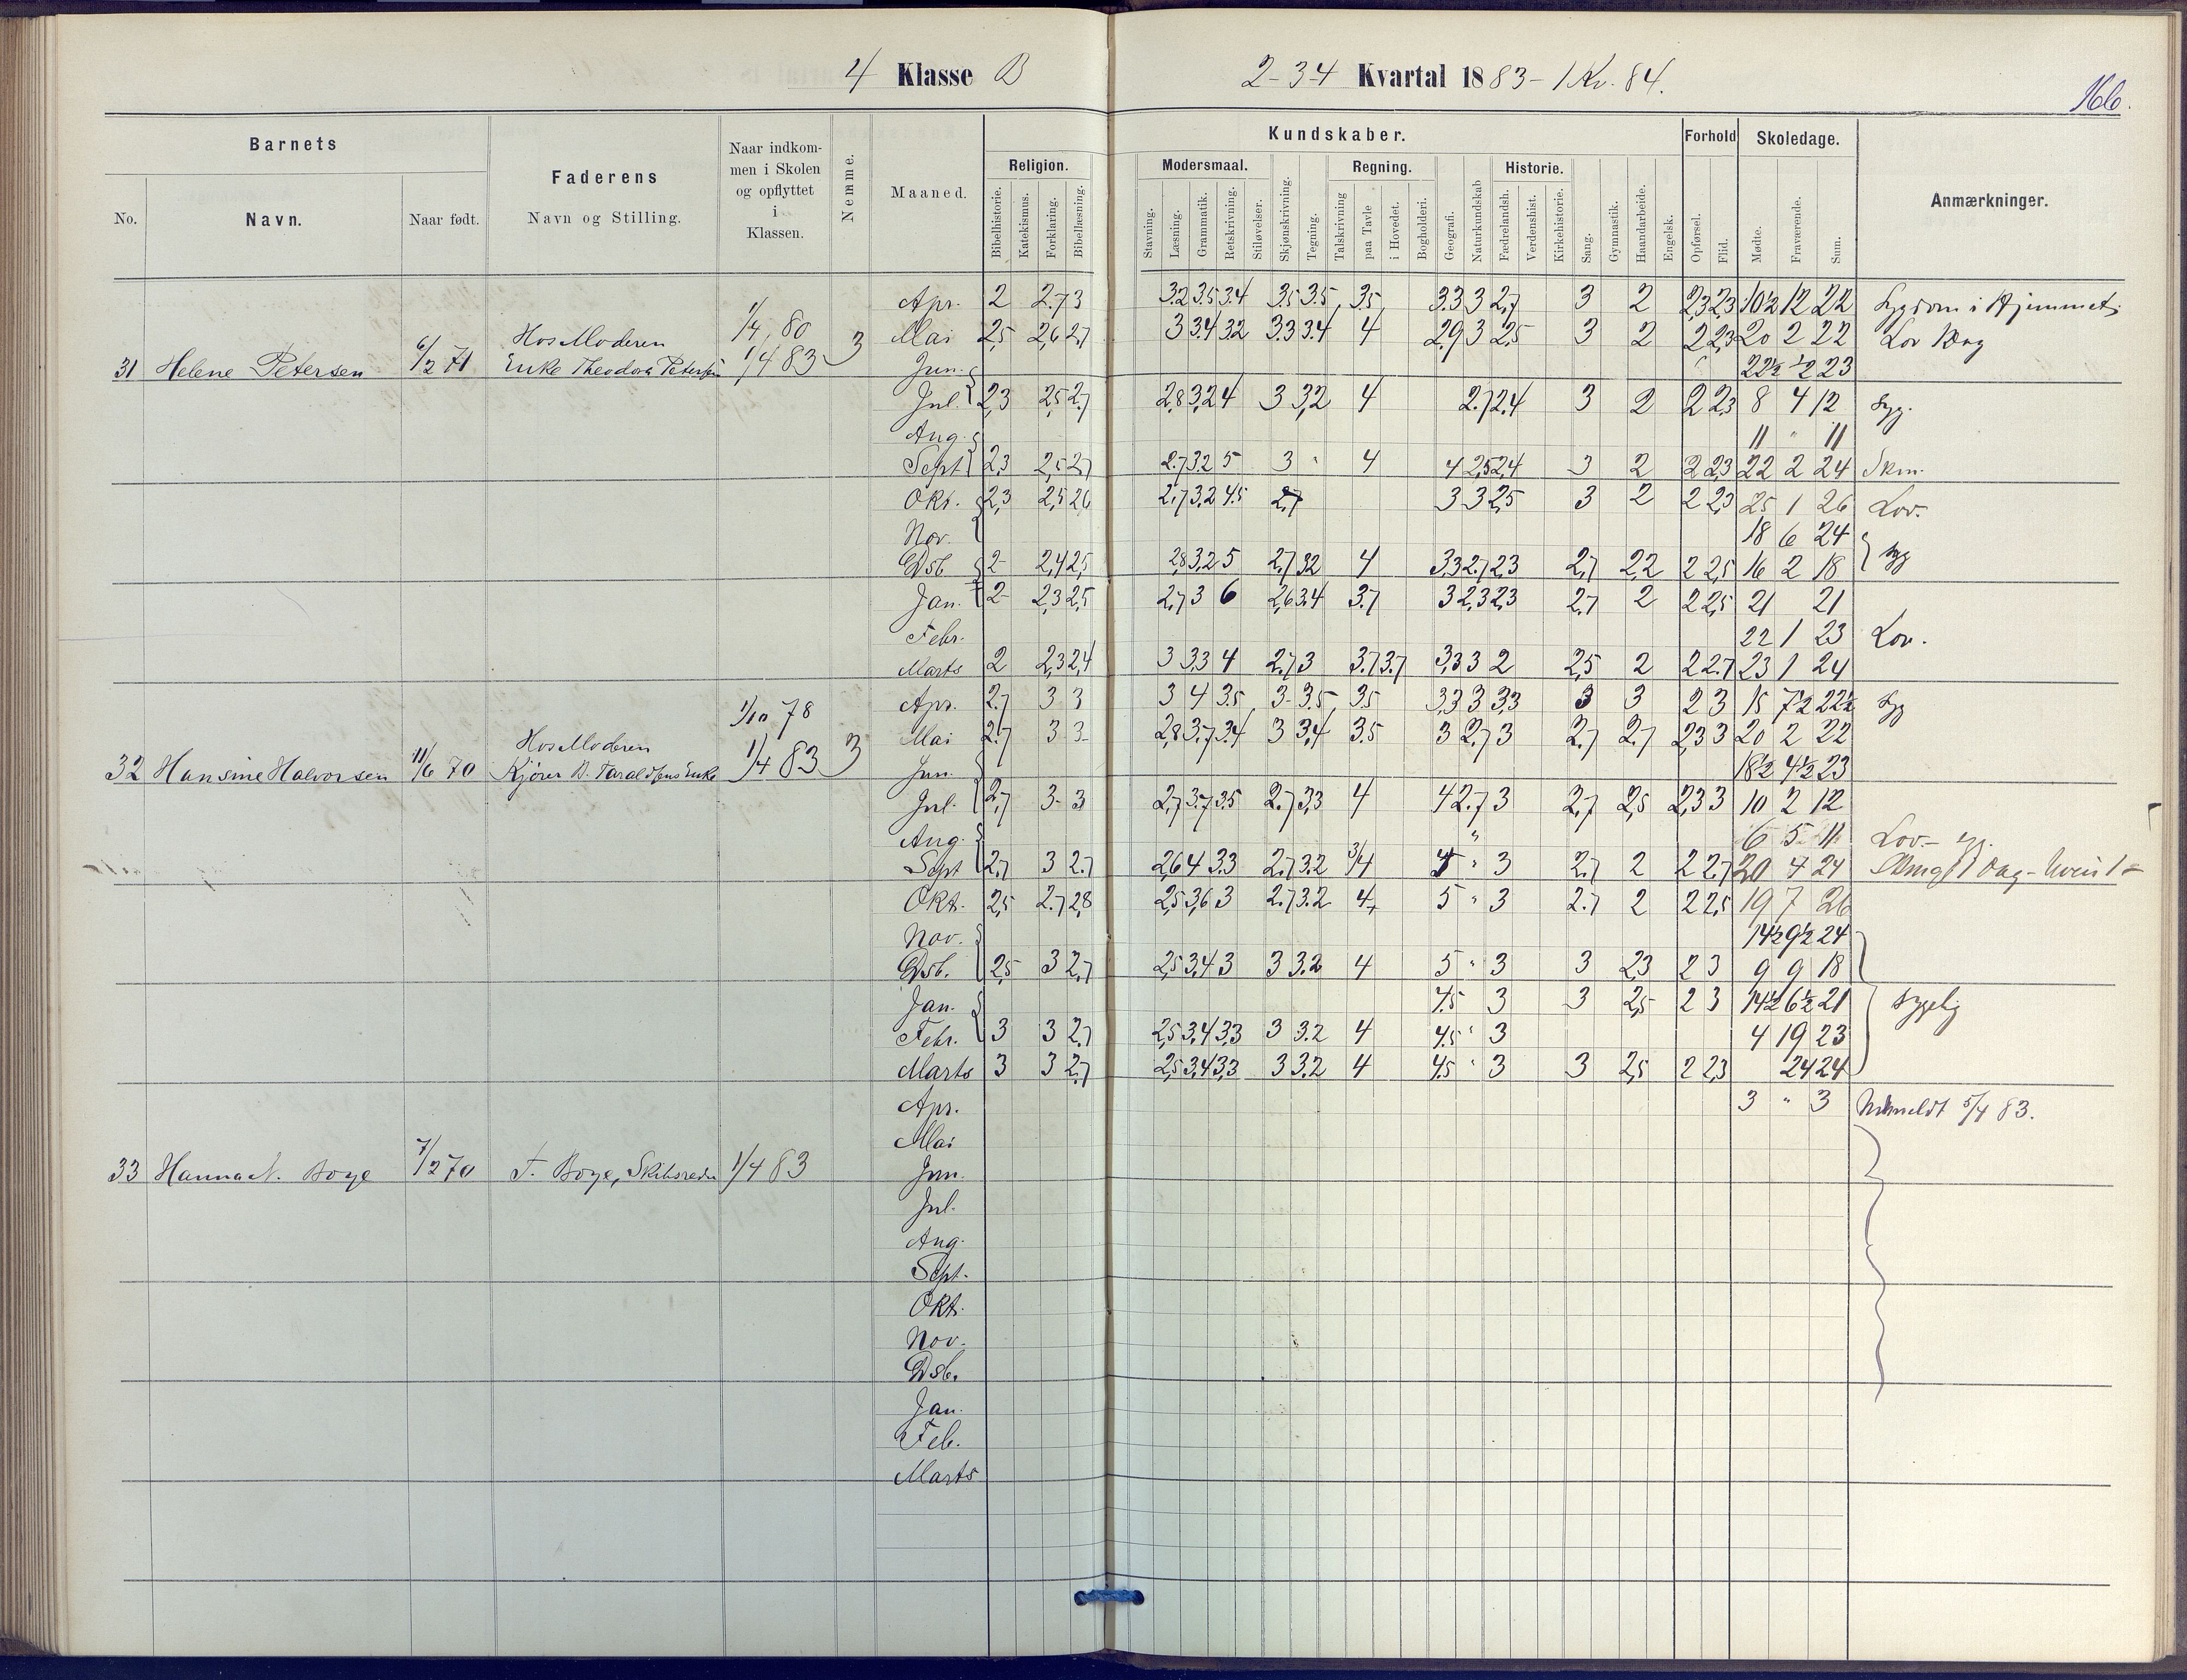 4 Klasse B 2-3-4 Kvartal 1883-1 Kv. 84.
166.
Barnets
No.
Navn.
Naar født.
Faderens
Navn og Stilling.
Naar indkom-
men i Skolen
og opflyttet
i
Klassen.
Nemme.
Maaned.
Kundskaber.
Religion.
Bibelhistorie.
Katekismus.
Forklaring.
Bibellæsning.
Modersmaal.
Stavning.
Læsning.
Grammatik.
Retskrivning.
Stiløvelser.
Skjønskrivning.
Tegning.
Regning.
Talskrivning
paa Tavle
i Hovedet.
Bogholderi.
Geografi.
Naturkundskab
Historie.
Fædrelandsh.
Verdenshist.
Kirkehistorie.
Sang.
Gymnastik.
Haandarbeide.
Engelsk.
Forhold
Opførsel.
Flid.
Skoledage.
Mødte.
Fraværende.
Sum.
Anmærkninger.
31 Helene Petersen 6/2 71 Hos Moderen
Enke Theodora Petersen 1/4 80
1/4 83 3
Apr. 2 2.7 3 3.2 3.5 3.4 3.5 3.5 3.5 3.3 3 2,7 3 2 2,3 2,3 10½ 12 22 Sygdom i Hjemmet
Mai 2,5 2,6 2,7 3 3.4 3.2 3.3 3.4 4 2,9 3 2,5 3 2 2 2,3 20 2 22 Lov 1 Dag
Jun. 22½ ½ 23
Jul. 2,3 2,5 2,7 2,8 3,2 4 3 3,2 4 2.7 2,4 3 2 2 2,3 8 4 12 Syg.
Aug. 11 " 11
Sept 2,3 2,5 2,7 2.7 3.2 5 3 " 4 4 2,5 2,4 3 2 2 2,3 22 2 24
Okt. 2,3 2,5 2,6 2,7 3,2 4.5 2,7 3 3 2,5 3 2 2 2,3 25 1 26 Lov.
Nov. 18 6 24
Dsb 2 2,4 2,5 2,8 3,2 5 2,7 3,2 4 3,3 2.7 2,3 2,7 2,2 2 2,5 16 2 18 syg
Jan. 2 2,3 2,5 2,7 3 6 2,6 3.4 3.7 3 2,3 2,3 2.7 2 2 2,5 21 21
Febr. 22 1 23 Lov.
Marts 2 2,3 2,4 3 3,3 4 2.7 3 3.7 3.7 3,3 3 2 2,5 2 2 2.7 23 1 24
32 Hansine Halvorsen 11/6 70 Hos Moderen
Kjører B. Taraldsens Enke 1/10 78
1/4 83 3
Apr. 2.7 3 3 3 4 3.5 3 3.5 3.5 3,3 3 3,3 3 3 2 3 15 7½ 22½ Syg
Mai 2.7 3 3 2,8 3.7 3.4 3 3,4 3.5 3 2,7 3 2.7 2.7 2,3 3 20 2 22
Jun. 18½ 4½ 23
Jul. 2,7 3 3 2,7 3.7 3.5 2.7 3,3 4 4 2.7 3 2,7 2,5 2,3 3 10 2 12
Aug. " 6 5 11 Lov.
Sept 2,7 3 2.7 2,6 4 3.3 2.7 3.2 3/4 " 3 2.7 2 2 2.7 20 4 24
Okt. 2,5 2.7 2,8 2,5 3,6 3 2.7 3.2 4 5 " 3 2.7 2 2 2,5 19 7 26
Nov. 14½ 9½ 24
Dsb. 2,5 3 2,7 2,5 3,4 3 3 3.2 4 5 " 3 3 2,3 2 3 9 9 18
Jan. 4.5 3 3 2,5 2 3 14½ 6½ 21 Sygelig
Febr. 3 3 2.7 2,5 3,4 3,3 3 3.2 4 4.5 " 3 4 19 23
Marts 3 3 2,7 2,5 3,4 3,3 3 3.2 4 4.5 " 3 3 2,5 2 2,3 24 24
33 Hanna N. Boye 7/2 70 T. Boye, Skibsreder 1/4 83
Apr. 3 " 3 Udmeldt 5/4 83.
Mai
Jun.
Jul.
Aug.
Sept.
Okt.
Nov.
Dsb.
Jan.
Feb.
Marts